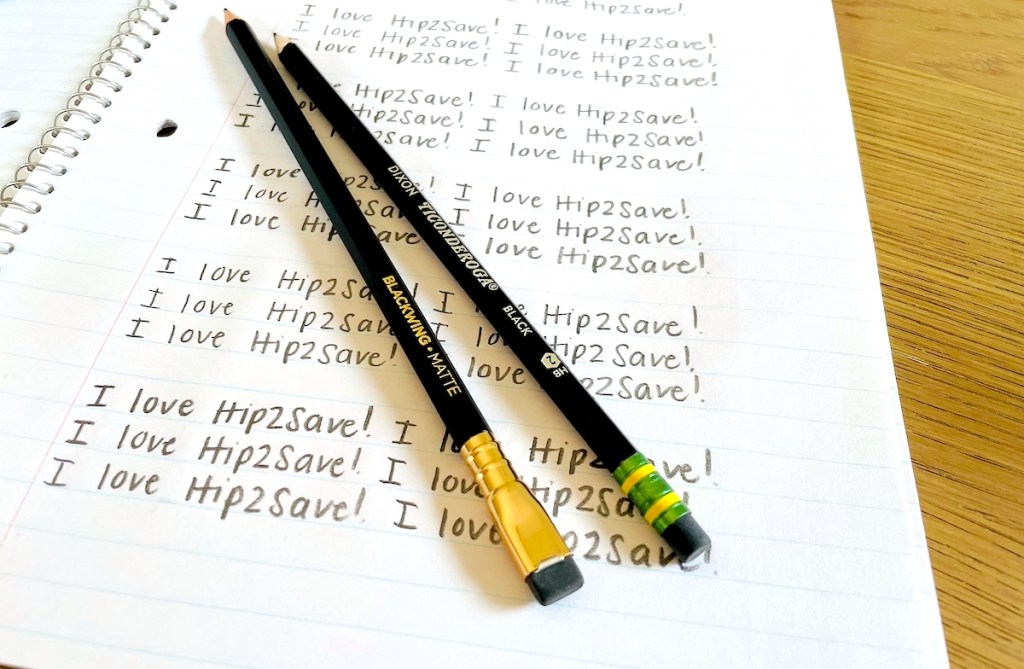 love Hip2Save!
I love Hip2Save! I love Hip2Save!
I love Hip2Save! I love Hip2Save!
love Hip2Save! I love Hip2Save!
Hip2Save! I love Hip2Save!
Hip2Save! I love Hip2Save!
I Hip2Save! I love Hip2Save!
I love I love Hip2Save!
I love I love Hip2Save!
I love Hip2Save love Hip2Save!
I love I Hip2Save!
I love Hip2Save!
I love Hip2Save! love
I love Hip2Save! I
I love Hip2Save! I love
I love Hip2Save! I love
DIXON TICONDEROGA® BLACK 2 BH
BLACKWING • MATTE